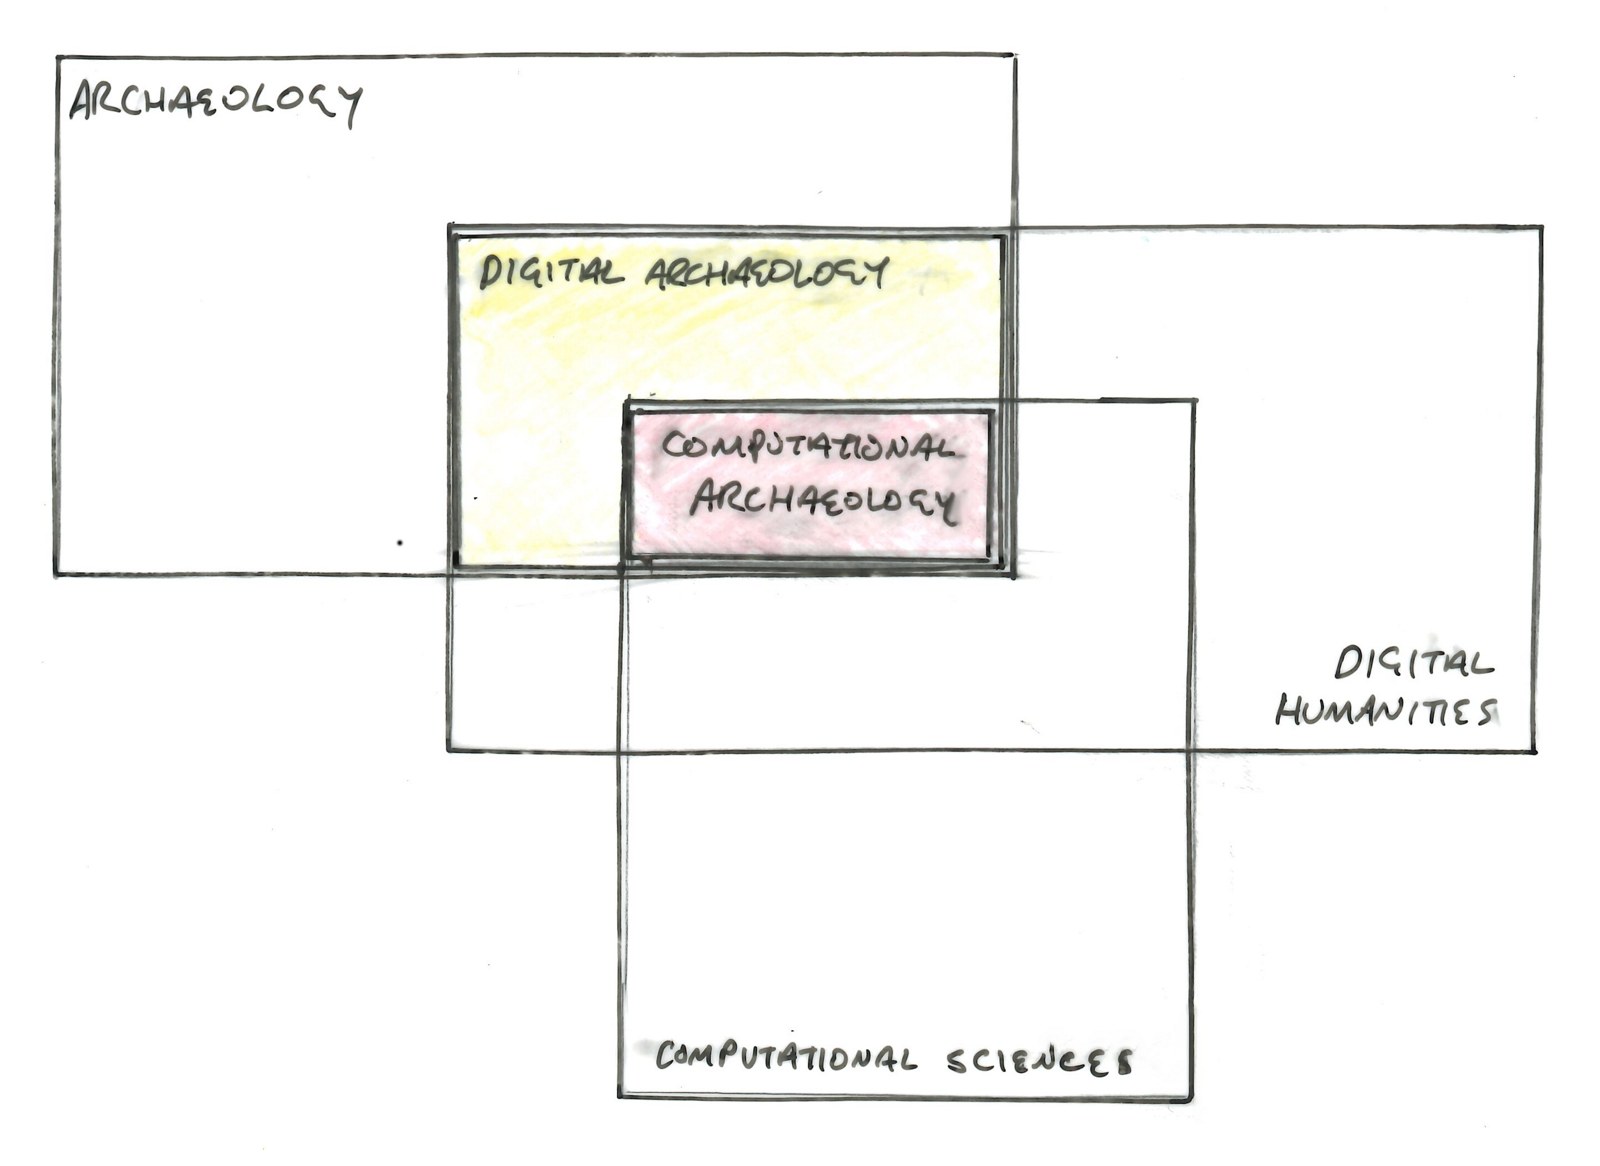 ARCHAEOLOGY
DIGITAL ARCHAEOLOGY
COMPUTATIONAL
ARCHAEOLOGY
DIGITAL
HUMANITIES
COMPUTATIONAL SCIENCES